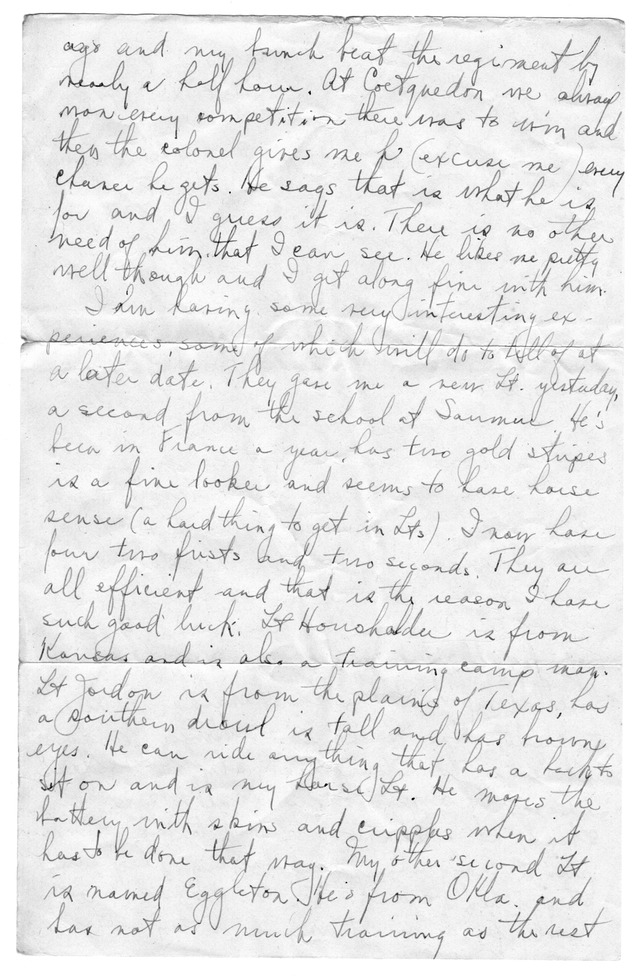 ago and my bunch beat the regiment by
nearly a half hour. At Coetquedon we always
won every competition there was to win and
then the colonel gives me h— (excuse me) every
chance he gets. He says that is what he is
for and I guess it is. There is no other
need of him that I can see. He likes me pretty
well though and I get along fine with him.
I am having some very interesting ex-
periences, some of which will do to tell of at
a later date. They gave me a new Lt. yesterday,
a second from the school at Saumur. He's
been in France a year, has two gold stripes
is a fine looker and seems to have horse
sense (a hard thing to get in Lts). I now have
four two firsts and two seconds. They are
all efficient and that is the reason I have
such good luck. Lt Housholder is from
Kansas and is also a training camp man.
Lt Jordon is from the plains of Texas, has
a southern drawl is tall and has brown
eyes. He can ride anything that has a back to
sit on and is my horse Lt. He moves the
battery with skins and cripples when it
has to be done that way. My other second Lt
is named Eggleton. He's from Okla. and
has not as much training as the rest